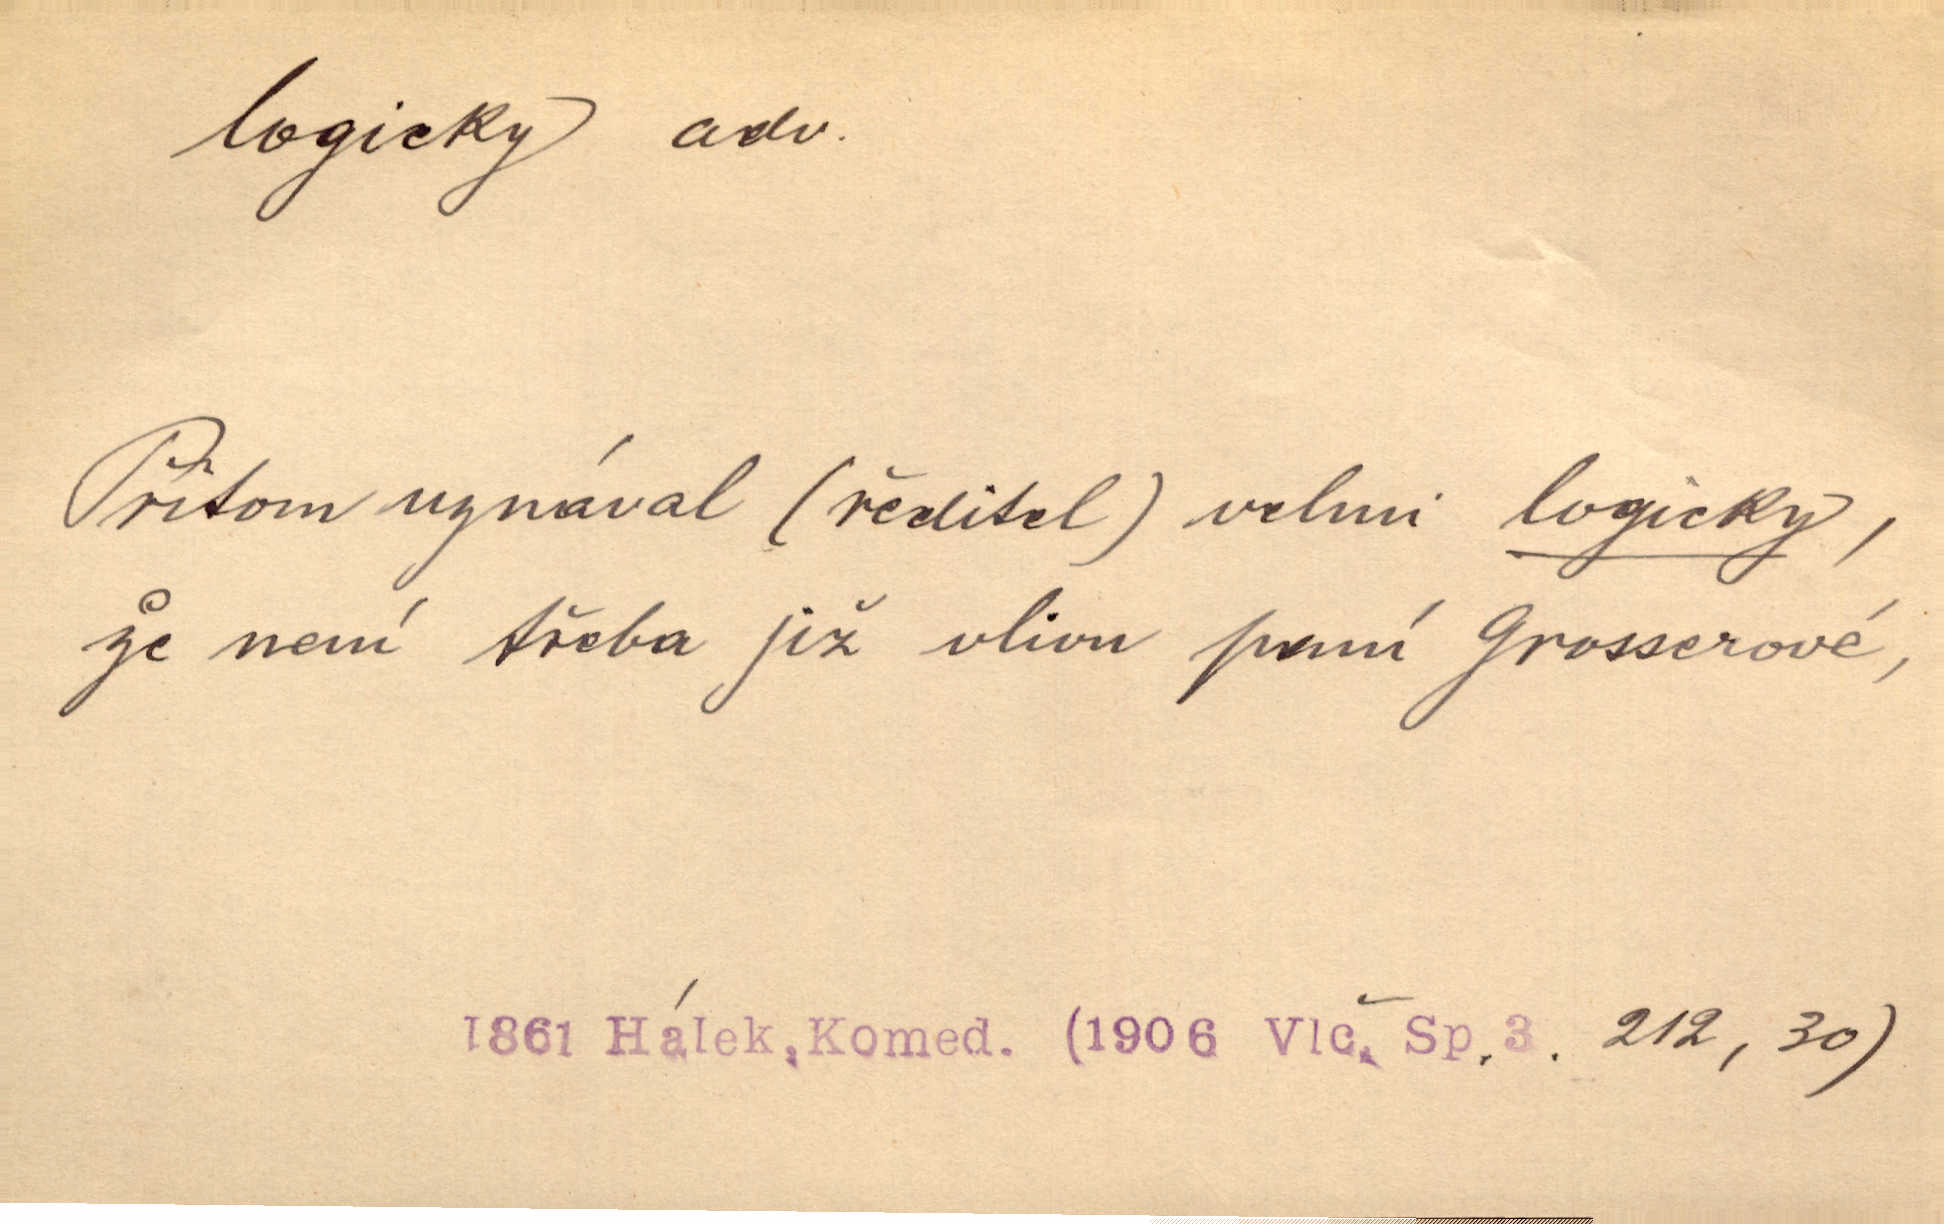 logicky adv.
Přitom uznával (ředitel) velmi logicky,
že není třeba již vlivu paní Grosserové,
1861 Hálek, Komed. (1906 Vlč. Sp. 3. 212, 30)